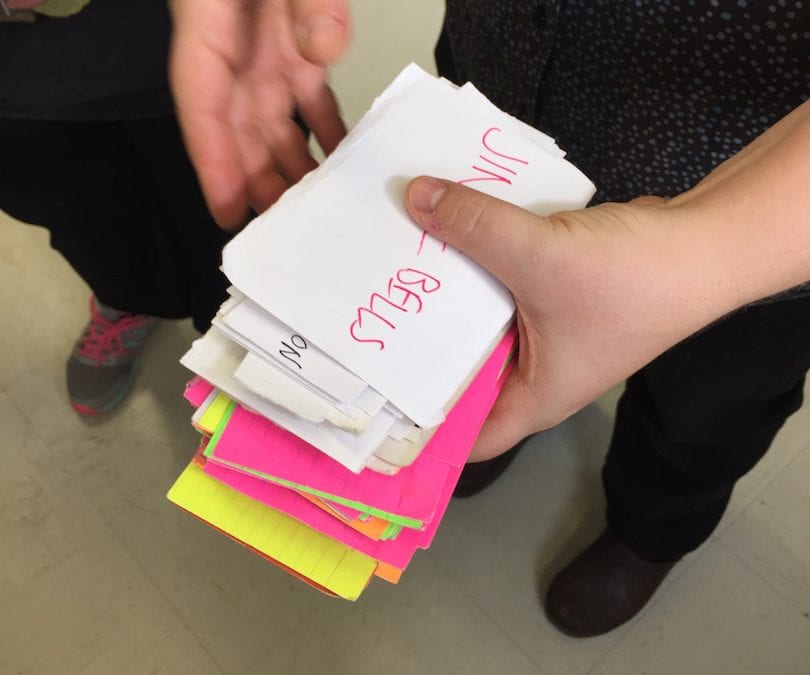 JIN BELLS
ON